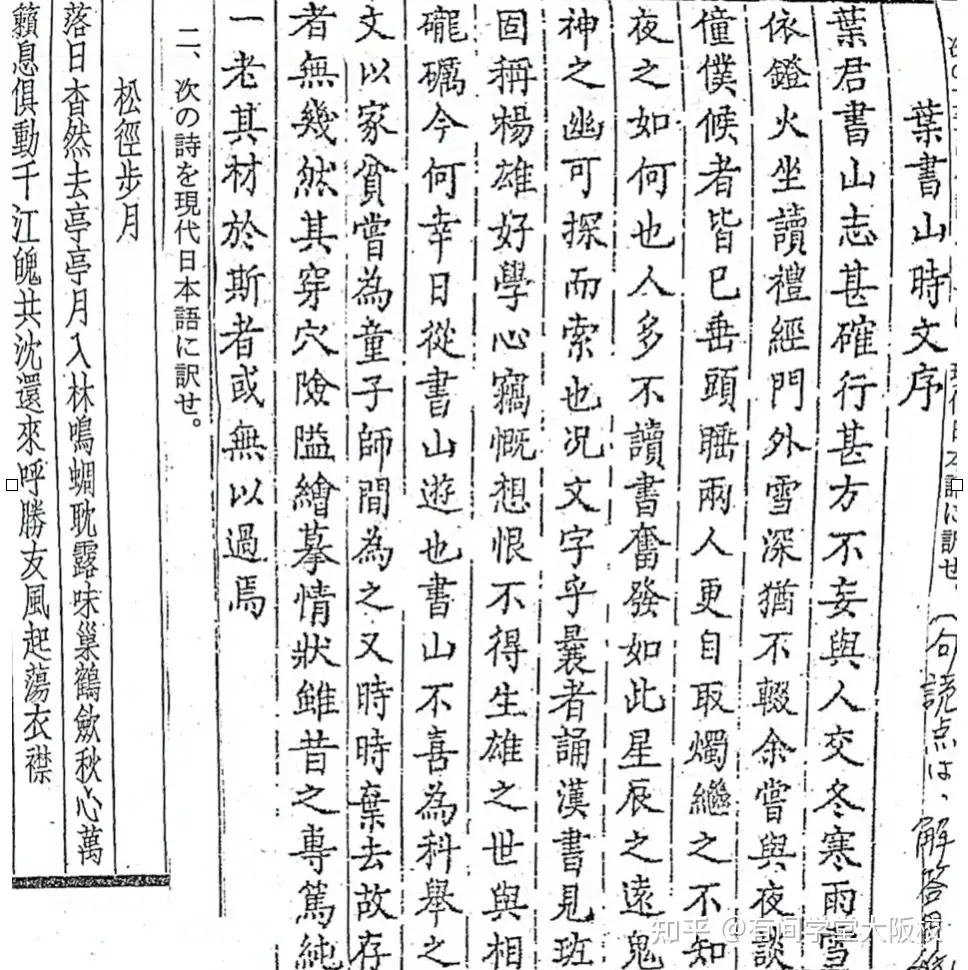 現代日本語に訳せ。(句読点は、解答
葉書山時文序
葉君書山志甚確行甚方不妄與人交冬寒雨雪
依鐙火坐讀禮經門外雪深猶不輟余嘗與夜談
僮僕候者皆已垂頭睡兩人更自取燭繼之不知
夜之如何也人多不讀書奮發如此星辰之遠鬼
神之幽可探而索也況文字乎曩者誦漢書見班
固稱楊雄好學心竊慨想恨不得生雄之世與相
礲礪今何幸日從書山遊也書山不喜為科舉之
文以家貧嘗為童子師間為之又時時棄去故存
者無幾然其穿穴險隘繪摹情狀雖昔之專篤純
一老其材於斯者或無以過焉
二、次の詩を現代日本語に訳せ。
松徑步月
落日杳然去亭亭月入林鳴蜩耽露味巢鶴斂秋心萬
籟息俱動千江魄共沈還來呼勝友風起蕩衣襟
知乎 @有间学堂大阪校